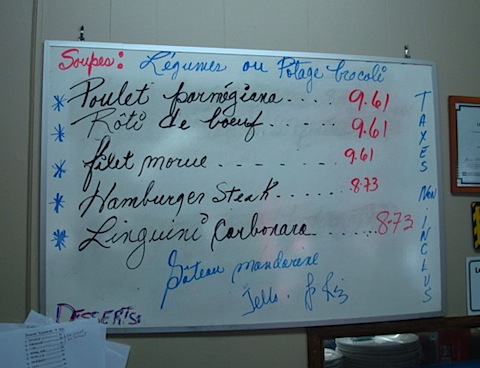 Soupes: Légumes ou Potage brocoli
* Poulet parmégiana.... 9.61
* Rôti de boeuf...... 9.61
* filet morue ------ 9.61
* Hamburger Steak...... 8.73
* Linguini Carbonara ...... 8.73
Gâteau mandarine
Jello.
DESSERTS:
TAXES Non INCLUS